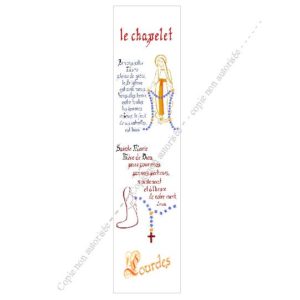 le chapelet
Je vous salue
Marie
pleine de grâce,
le Seigneur
est avec vous
vous êtes bénie
entre toutes
les femmes
et Jésus, le fruit
de vos entrailles
est béni
Sainte Marie
Mère de Dieu
priez pour nous
pauvres pécheurs,
maintenant
et à l'heure
de notre mort
Amen
Lourdes
Copie non autorisée - copie non autorisée